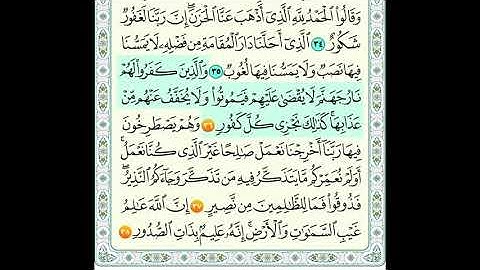 وَقَالُوا۟ ٱلْحَمْدُ لِلَّهِ ٱلَّذِىٓ أَذْهَبَ عَنَّا ٱلْحَزَنَ ۖ إِنَّ رَبَّنَا لَغَفُورٌ
شَكُورٌ ٣٤ ٱلَّذِىٓ أَحَلَّنَا دَارَ ٱلْمُقَامَةِ مِن فَضْلِهِۦ لَا يَمَسُّنَا
فِيهَا نَصَبٌ وَلَا يَمَسُّنَا فِيهَا لُغُوبٌ ٣٥ وَٱلَّذِينَ كَفَرُوا۟ لَهُمْ
نَارُ جَهَنَّمَ لَا يُقْضَىٰ عَلَيْهِمْ فَيَمُوتُوا۟ وَلَا يُخَفَّفُ عَنْهُم مِّنْ
عَذَابِهَا ۚ كَذَٰلِكَ نَجْزِى كُلَّ كَفُورٍ ٣٦ وَهُمْ يَصْطَرِخُونَ
فِيهَا رَبَّنَآ أَخْرِجْنَا نَعْمَلْ صَٰلِحًا غَيْرَ ٱلَّذِى كُنَّا نَعْمَلُ ۚ
أَوَلَمْ نُعَمِّرْكُم مَّا يَتَذَكَّرُ فِيهِ مَن تَذَكَّرَ وَجَآءَكُمُ ٱلنَّذِيرُ ۖ
فَذُوقُوا۟ فَمَا لِلظَّٰلِمِينَ مِن نَّصِيرٍ ٣٧ إِنَّ ٱللَّهَ عَٰلِمُ
غَيْبِ ٱلسَّمَٰوَٰتِ وَٱلْأَرْضِ ۚ إِنَّهُۥ عَلِيمٌۢ بِذَاتِ ٱلصُّدُورِ ٣٨